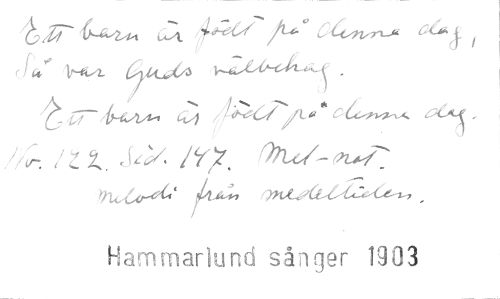 Ett barn är födt på denna dag,
Så var Guds välbehag.
Ett barn är födt på denna dag.
No. 122. Sid. 147. Mel-not.
melodi från medeltiden.
Hammarlund sånger 1903